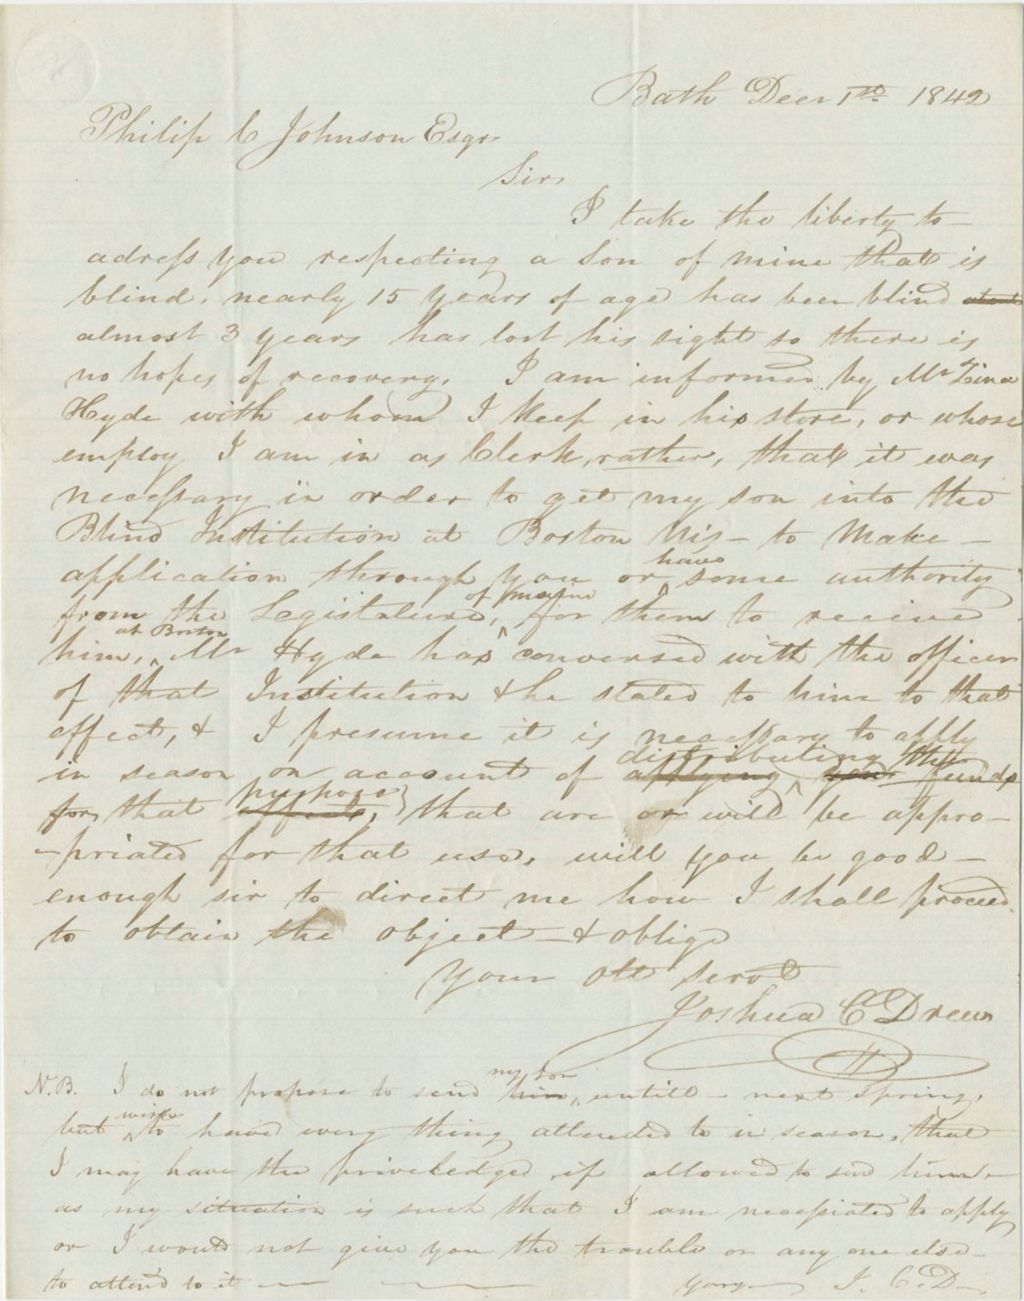 Bath Decr 1st. 1842
Philip C Johnson Esqr
Sir,
I take the liberty to
adress you respecting a son of mine that is
blind, nearly 15 years of age has been blind
almost 3 years has lost his sight so there is
no hopes of recovery. I am informed by Mr Zina
Hyde with whom I keep in his store, or whose
employ I am in as Clerk, rather, that it was
necessary in order to get my son into the
Blind Institution at Boston to make
have
application through you or some authority
of maine
from the Legislature, for them to receive
at Boston
him, Mr Hyde has conversed with the officer
of that Institution & he stated to him to that
effect, & I presume it is necessary to apply
distributing the
in season on account of applying your funds
purpose
for that effect, that are or will be appro-
-priated for that use, will you be good
enough sir to direct me how I shall proceed
to obtain the object & oblige
Your Obt Servt
Joshua C Drew
my son
N.B. I do not propose to send him, untill next Spring,
wish
but to have every thing attended to in season, that
I may have the priviledged if allowed to send him
as my situation is such that I am necessiated to apply
or I would not give you the trouble or any one else
to attend to it yours J. C. D